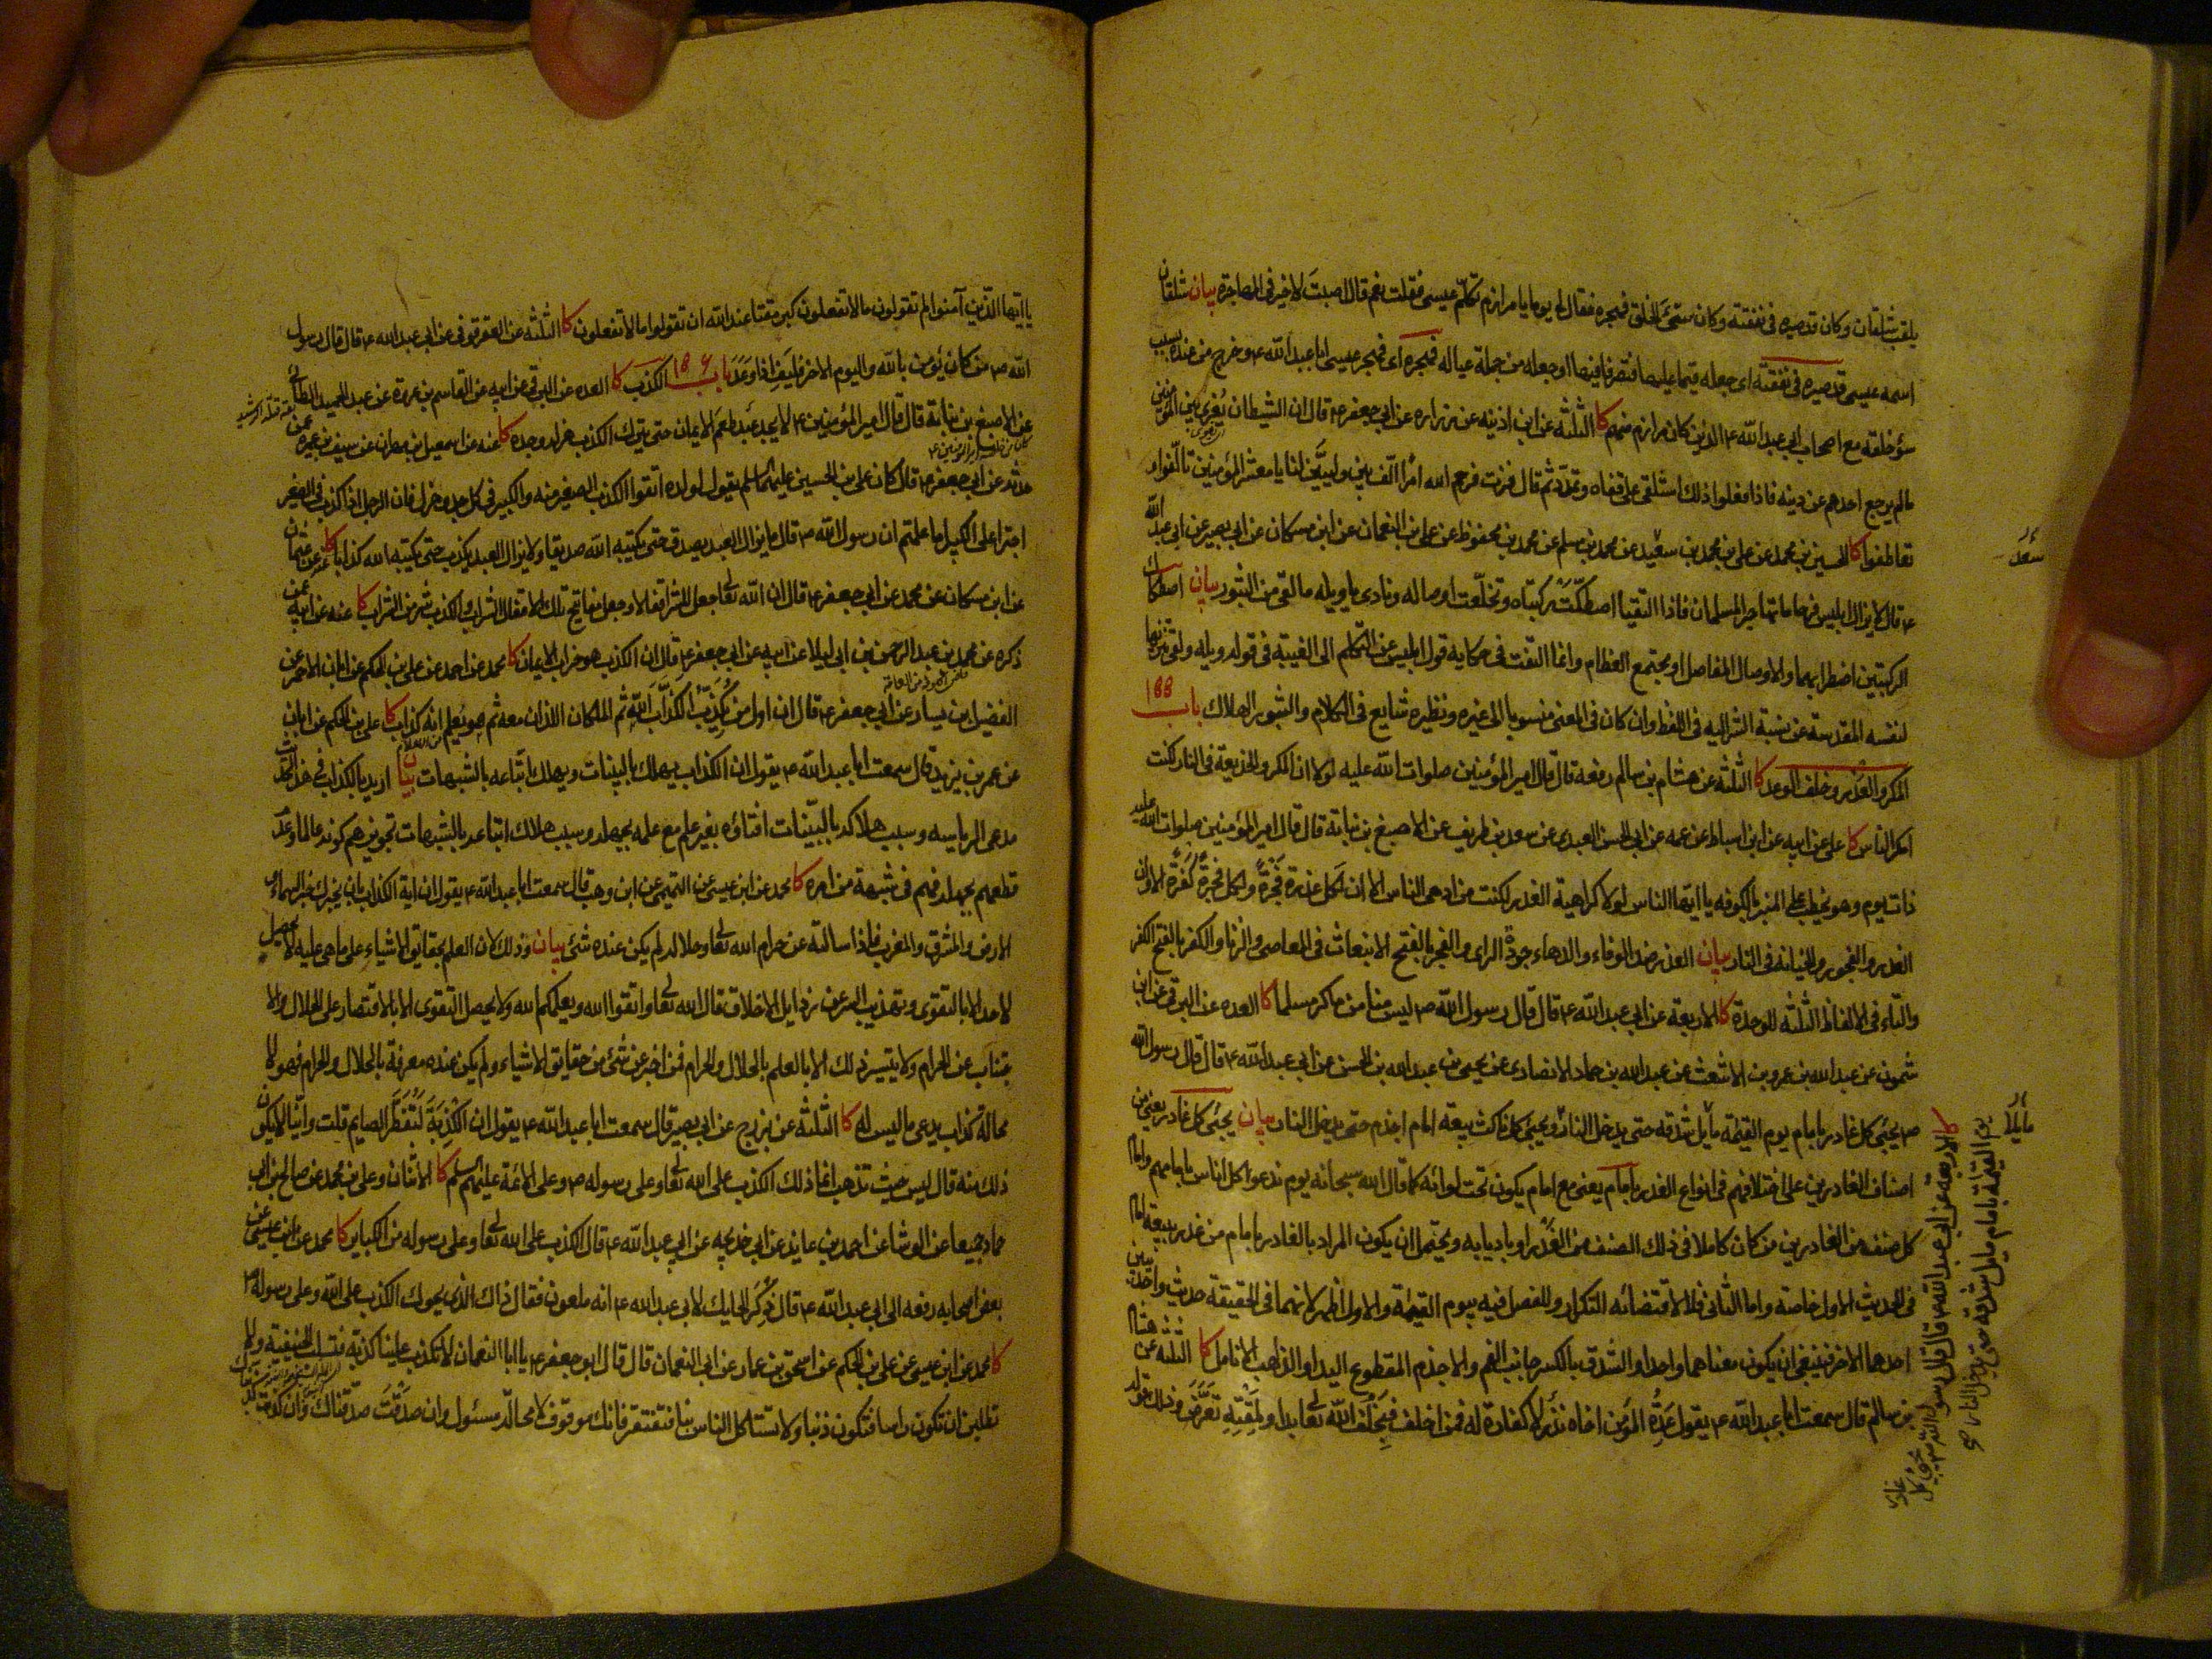 يلقب شلقان وكان قد صيره في نفقته وكان سيئ الخلق فهجره فقال لي يوما يا مرازم تكلم عيسى فقلت نعم قال اصبت لا خير في المهاجرة بيان شلقان
اسمه عيسى قد صيره في نفقته اى جعله قيما عليها فتصرفا فيها او جعله من جملة عياله فهجره اى فهجر عيسى ابا عبد الله ع وخرج من عنده بسبب
سوء خلقه مع اصحاب ابي عبد الله ع الذين كان مرازم منهم كا الثلثه عن ابن اذينه عن زراره عن ابي جعفر ع قال ان الشيطان يغرى بين المؤمنين
مالم يرجع احدهم عن دينه فاذا فعلوا ذلك استلقى على قفاه وتمدد ثم قال فزت فرحم الله امرأ الف بين وليين لنا يا معشر المؤمنين تالفوا و
تعاطفوا كا الحسين بن محمد عن على بن محمد بن سعيد عن محمد بن مسلم عن محمد بن محفوظ عن على بن النعمان عن ابن مسكان عن ابي بصير عن ابي عبد الله
ع قال لا يزال ابليس فرحا ما تهاجر المسلمان فاذا التقيا اصطكت ركبتاه وتخلعت اوصاله ونادى يا ويله ما لقى من الثبور بيان اصطكاك
الركبتين اضطرابهما والاوصال المفاصل او مجتمع العظام وانما التفت في حكاية قول ابليس عن التكلم الى الغيبة في قوله ويله ولقى تنزيها
لنفسه المقدسة عن نسبة الشر اليه في اللفظ وان كان في المعنى منسوبا الى غيره ونظيره شايع في الكلام والثبور الهلاك باب ١٥٥
المكر والغدر وخلف الوعد كا الثلثه عن هشام بن سالم رفعه قال قال امير المؤمنين صلوات الله عليه لولا ان المكر والخديعة في النار كنت
امكر الناس كا على عن ابيه عن ابن اسباط عن عمه عن ابي الحسن العبدى عن سعد بن طريف عن الاصبغ بن نباتة قال قال امير المؤمنين صلوات الله عليه
ذات يوم وهو يخطب على المنبر بالكوفه يا ايها الناس لولا كراهية الغدر لكنت من ادهى الناس الا ان لكل غدرة فجرة ولكل فجرة كفرة الا وان
الغدر والفجور والخيانة في النار بيان الغدر ضد الوفاء والدهاء جودة الراى والفجر بالفتح الانبعاث في المعاصى والزنا والكفر بالفتح الكفر
والتاء في الالفاظ الثلثه للوحدة كا الاربعة عن ابي عبد الله ع قال قال رسول الله ص ليس منا من ماكر مسلما كا العده عن البرقي عن ابن
شمون عن عبد الله بن عمرو بن الاشعث عن عبد الله بن حماد الانصارى عن يحيى بن عبد الله بن الحسن عن ابي عبد الله ع قال قال رسول الله
ص يجئ كل غادر بامام يوم القيمة مايل شدقه حتى يدخل النار ويجئ كل ناكث بيعة امام اجذم حتى يدخل النار بيان يجئ كل غادر يعنى من
اصناف الغادرين على اختلافهم في انواع الغدر بامام يعنى مع امام يكون تحت لوائه كما قال الله سبحانه يوم ندعوا كل اناس بامامهم وامام
كل صنف من الغادرين من كان كاملا في ذلك الصنف من الغدر او باديا به ويحتمل ان يكون المراد بالغادر بامام من غدر ببيعة امام
في الحديث الاول خاصة واما الثاني فلا لاقتضائه التكرار وللفصل فيه بيوم القيمة والاول اظهر لانهما في الحقيقة حديث واحد يبين
احدهما الاخر فينبغي ان يكون معناهما واحدا والشدق بالكسر جانب الفم والاجذم المقطوع اليد او الذاهب الانامل كا الثلثه عن هشام
بن سالم قال سمعت ابا عبد الله ع يقول عدة المؤمن اخاه نذر لا كفارة له فمن اخلف فبخلف الله تعالى بدا ولمقته تعرض وذلك قوله
سعد
مايلا
كا الاربعة عن ابي عبد الله ع قال قال رسول الله ص يجئ كل غادر
يوم القيمة بامام مايل شدقه حتى يدخل النار
يا ايها الذين آمنوا لم تقولون مالا تفعلون كبر مقتا عند الله ان تقولوا ما لا تفعلون كا الثلثه عن العقرقوفى عن ابي عبد الله ع قال قال رسول
الله ص من كان يؤمن بالله واليوم الاخر فليف اذا وعد باب ١٥٦ الكذب كا العده عن البرقي عن ابيه عن القاسم بن عروة عن عبد الحميد الطائى
عن الاصبغ بن نباتة قال قال امير المؤمنين ع لا يجد عبد طعم الايمان حتى يترك الكذب هزله وجده كا عنه عن اسمعيل بن مهران عن سيف بن عميره عمن
حدثه عن ابي جعفر ع قال كان على بن الحسين عليهما السلم يقول لولده اتقوا الكذب الصغير منه والكبير في كل جد وهزل فان الرجل اذا كذب في الصغير
اجترا على الكبير اما علمتم ان رسول الله ص قال ما يزال العبد يصدق حتى يكتبه الله صديقا ولا يزال العبد يكذب حتى يكتبه الله كذابا كا عنه عن عثمان
عن ابن مسكان عن محمد عن ابي جعفر ع قال ان الله تعالى جعل للشر اقفالا وجعل مفاتيح تلك الاقفال الشراب والكذب شر من الشراب كا عنه عن ابيه عمن
ذكره عن محمد بن عبد الرحمن بن ابي ليلا عن ابيه عن ابي جعفر ع قال ان الكذب هو خراب الايمان كا محمد عن احمد عن على بن الحكم عن ابان الاحمر عن
الفضيل بن يسار عن ابي جعفر ع قال ان اول من يكذب الكذاب الله ثم الملكان اللذان معه ثم هو يعلم انه كذاب كا على بن الحكم عن ابان
عن عمر بن يزيد قال سمعت ابا عبد الله ع يقول ان الكذاب يهلك بالبينات ويهلك اتباعه بالشبهات بيان اريد بالكذاب في هذا الحديث
مدعى الرياسه وسبب هلاكه بالبينات افتاؤه بغير علم مع علمه بجهله وسبب هلاك اتباعه بالشبهات تجويزهم كونه عالما وعدم
قطعهم بجهله فهم في شبهة من امره كا محمد عن ابن عيسى عن التميمى عن ابن وهب قال سمعت ابا عبد الله ع يقول ان اية الكذاب بان يخبرك خبر السماء و
الارض والمشرق والمغرب فاذا سالته عن حرام الله تعالى وحلاله لم يكن عنده شئ بيان وذلك لان العلم بحقايق الاشياء على ما هى عليه لا يحصل
لاحد الا بالتقوى وتهذيب السر عن رذايل الاخلاق قال الله تعالى واتقوا الله ويعلمكم الله ولا يحصل التقوى الا بالاقتصار على الحلال والا
جتناب عن الحرام ولا يتيسر ذلك الا بالعلم بالحلال والحرام فمن اخبر عن شئ من حقايق الاشياء ولم يكن عنده معرفة بالحلال والحرام فهو لا
محالة كذاب يدعى ما ليس له كا الثلثه عن بزرج عن ابي بصير قال سمعت ابا عبد الله ع يقول ان الكذبة لتفطر الصايم قلت واينا لا يكون
ذلك منه قال ليس حيث تذهب انما ذلك الكذب على الله تعالى وعلى رسوله ص وعلى الائمة عليهم السلم كا الاثنان وعلى بن محمد عن صالح بن ابي
حماد جميعا عن الوشا عن احمد بن عايذ عن ابي خديجه عن ابي عبد الله ع قال الكذب على الله تعالى وعلى رسوله من الكباير كا محمد عن ابن عيسى عن
بعض اصحابه رفعه الى ابي عبد الله ع قال ذكر الحايك لابي عبد الله ع انه ملعون فقال ذاك الذى يحوك الكذب على الله وعلى رسوله ص
كا محمد عن ابن عيسى عن على بن الحكم عن اسحق بن عمار عن ابي النعمان قال قال ابو جعفر ع يا ابا النعمان لا تكذب علينا كذبة فتسلب الحنيفية ولا
تطلبن ان تكون راسا فتكون ذنبا ولا تستاكل الناس بنا فتفتقر فانك موقوف لا محالة ومسئول وان صدقت صدقناك وان كذبت